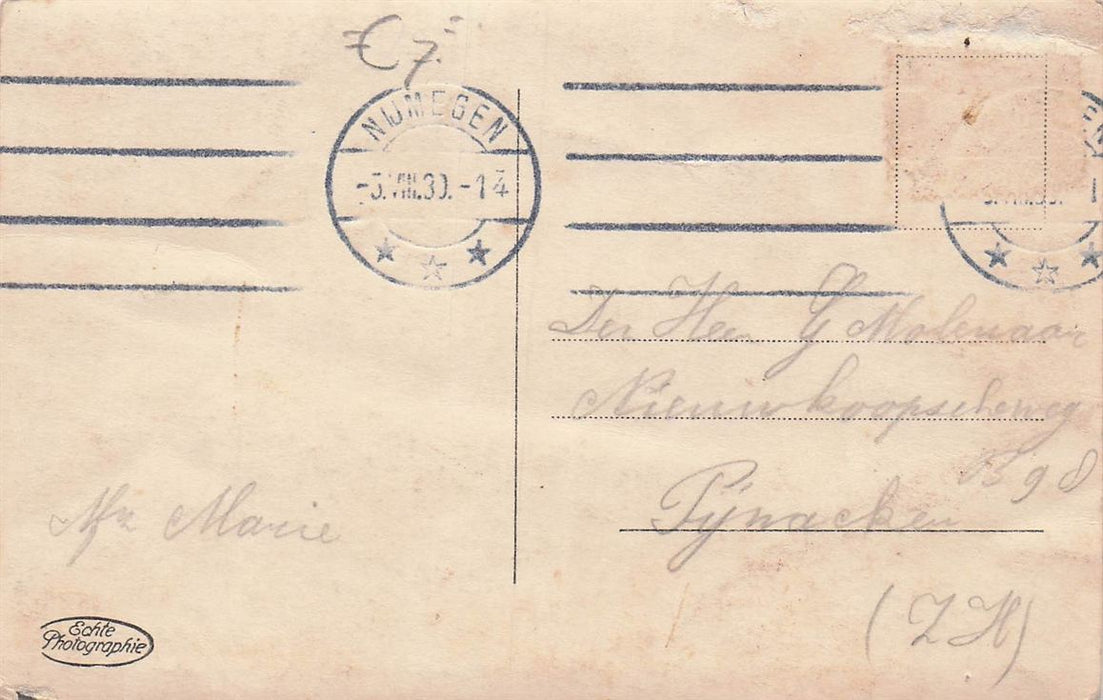 € 7,=
NIJMEGEN
-3.VIII.30.-14
Den Heer G Molenaar
Nieuwkoopscheweg
B 98
Pijnacker
(Z H)
Afz Marie
Echte
Photographie